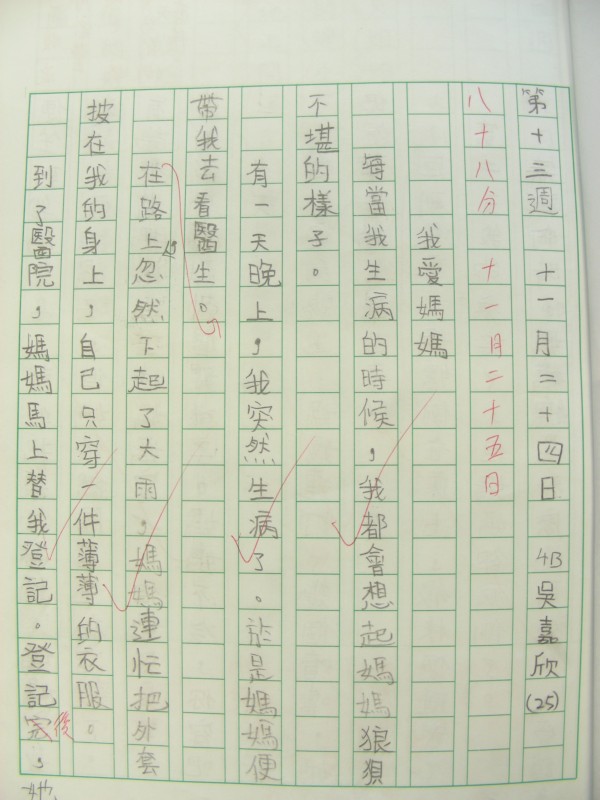 第十三週 十一月二十四日 4B吳嘉欣(25)
八十八分 十一月二十五日
我愛媽媽
每當我生病的時候，我都會想起媽媽狼狽
不堪的樣子。
有一天晚上，我突然生病了。於是媽媽便
帶我去看醫生。
在路上忽然下起了大雨，媽媽連忙把外套
披在我的身上，自己只穿一件薄薄的衣服。
到了醫院，媽媽馬上替我登記。登記完後，她